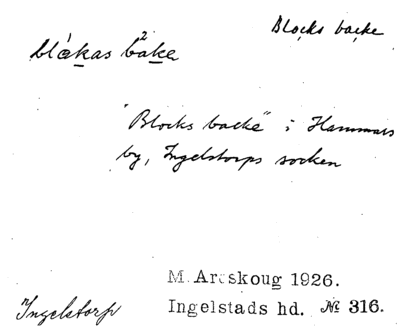 Blocks backe
blåkas bake
"Blocks backe" i Hammars
by, Ingelstorps socken
M. Areskoug 1926.
Ingelstorp
Ingelstads hd. № 316.